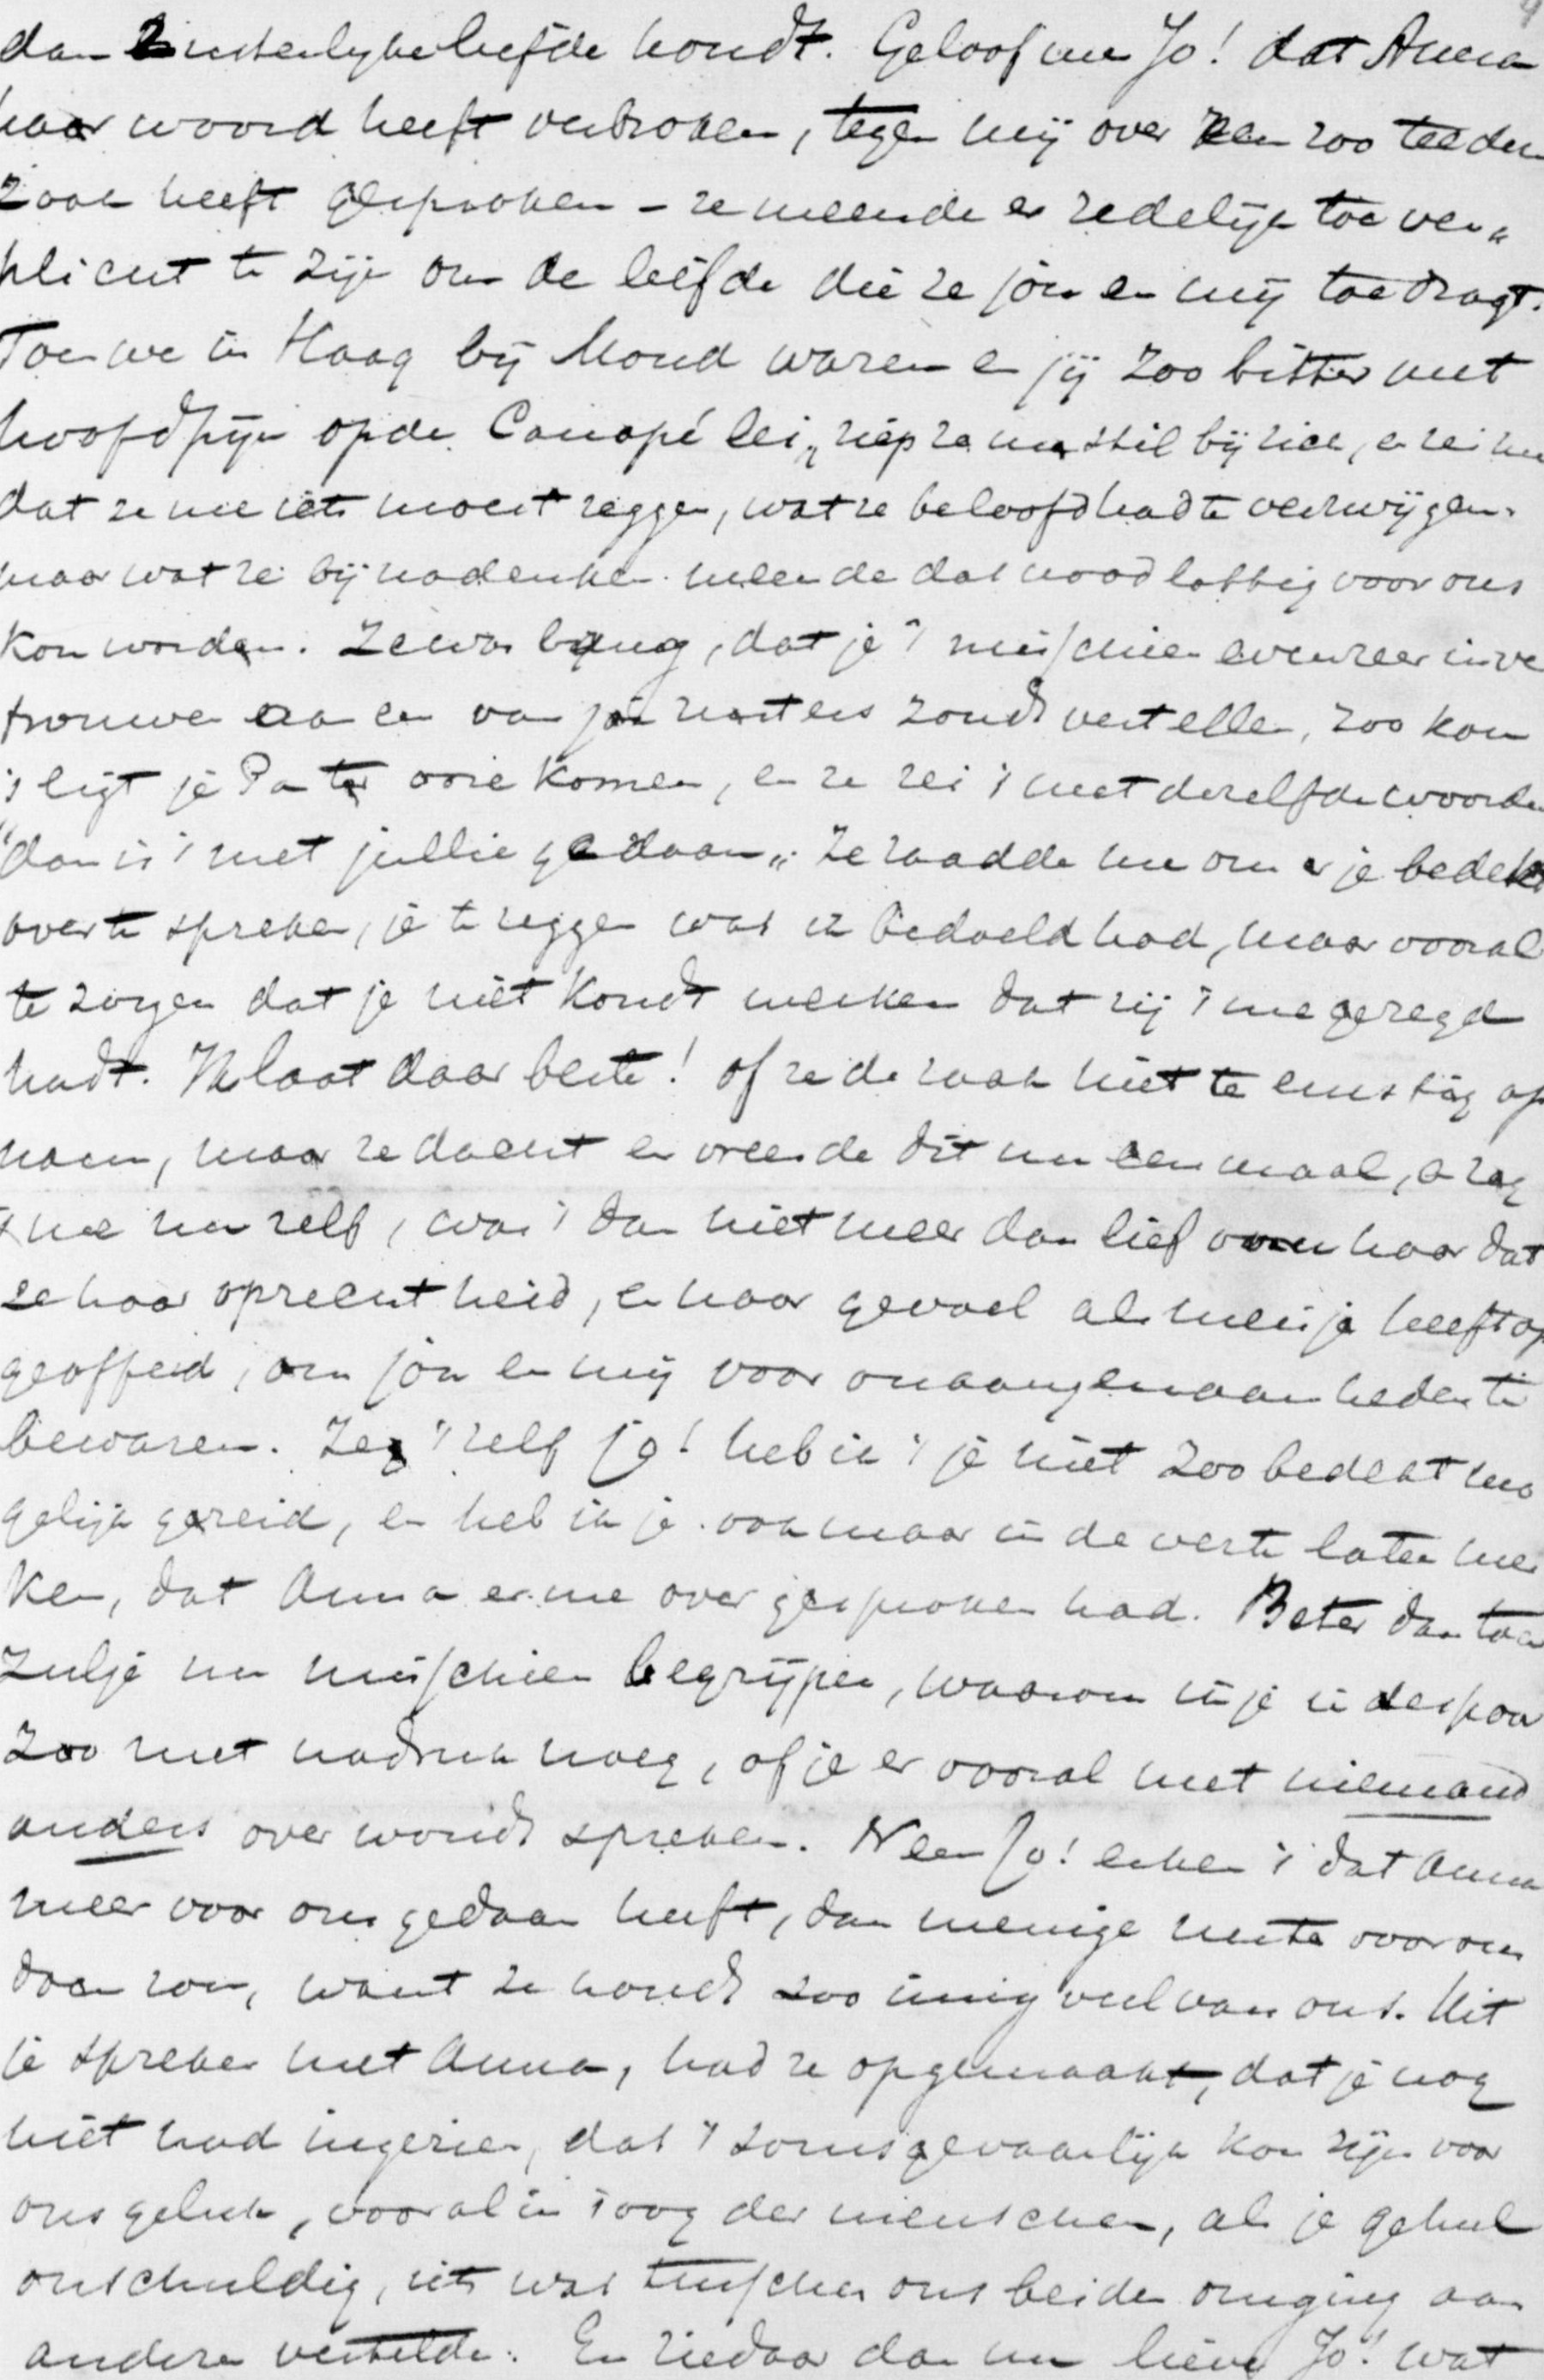 dan zusterlyke liefde houdt. Geloof me Jo! dat Anna
haar woord heeft verbroken, tegen mij over een zoo teedere
zaak heeft gesproken – ze meende er zedelijk toe ver„
plicht te zijn om de liefde die ze jou en mij toedragt.
Toen we in Haag bij Moud waren en jij zoo bitter met
hoofdpijn op de Canapé lei, riep ze me stil bij zich, en zei me
dat ze me iets moest zeggen, wat ze beloofd had te verzwijgen.
maar wat ze bij nadenken meende dat noodlottig voor ons
kon worden. Ze was bang, dat je 't misschien evenzeer in ver
trouwen aan een van jou zusters zoudt vertellen, zoo kon
't ligt je Pa ter oore komen, en ze zei 't met dezelfde woorden
"dan is 't met jullie gedaan„. Ze raadde me om er je bedekt
over te spreken, je te zeggen wat ik bedoeld had, maar vooral
te zorgen dat je niet kondt merken dat zij 't me gezegd
hadt. Ik laat daar beste! of ze de zaak niet te ernstig op
nam, maar ze dacht en vreesde dit nu eenmaal, o zeg
me nu zelf, was 't dan niet meer dan lief van haar dat
ze haar oprechtheid, en haar gevoel als meisje heeft op
geofferd, om jou en mij voor onaangenaamheden te
bewaren. Zeg 't zelf Jo! heb ik 't je niet zoo bedekt mo
gelijk gezeid, en heb ik je ook maar in de verte laten mer
ken, dat Anna er me over gesproken had. Beter dan toen
zulje nu misschien begrijpen, waarom ik je in de spoor
zoo met nadruk vroeg, of je er vooral met niemand
anders over woudt spreken. Neen Jo! erken 't dat Anna
meer voor ons gedaan heeft, dan menige zuster voor ons
doen zou, want ze houdt zoo innig veel van ons. Uit
je spreken met Anna, had ze opgemaakt, dat je nog
niet had ingezien, dat 't soms gevaarlijk kon zijn voor
ons geluk, vooral in 't oog der menschen, als je geheel
onschuldig, iets wat tusschen ons beiden omging aan
anderen vertelde. En ziedaar dan nu lieve Jo! wat